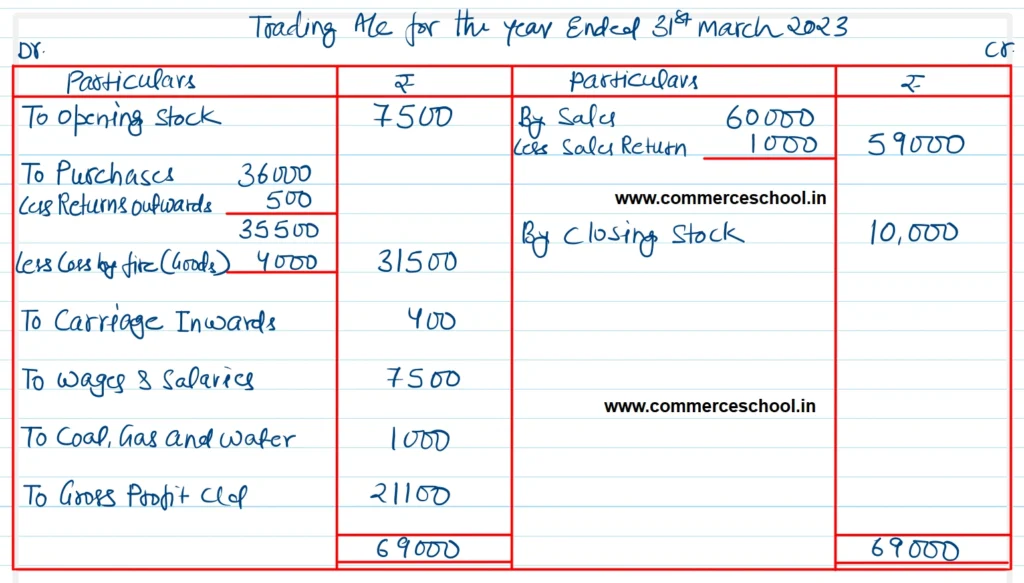 Trading A/c for the year Ended 31st March 2023
Dr. Cr.
Particulars ₹ Particulars ₹
To Opening Stock 7500 By Sales 60000
Less Sales Return 1000 59000
To Purchases 36000
Less Returns outwards 500
www.commerceschool.in
35500 By Closing Stock 10,000
Less Loss by fire (Goods) 4000 31500
To Carriage Inwards 400
To Wages & Salaries 7500
www.commerceschool.in
To Coal, Gas and Water 1000
To Gross Profit c/d 21100
69000 69000